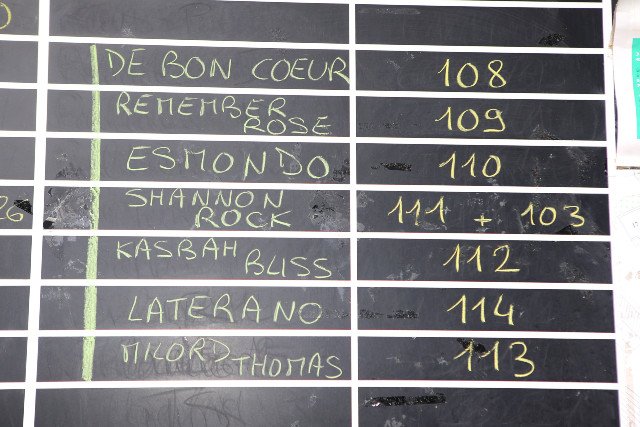 DE BON COEUR 108
REMEMBER
ROSE 109
ESMONDO 110
SHANNON
ROCK 111 + 103
26
KASBAH BLISS 112
LATERANO 114
MILORD THOMAS 113